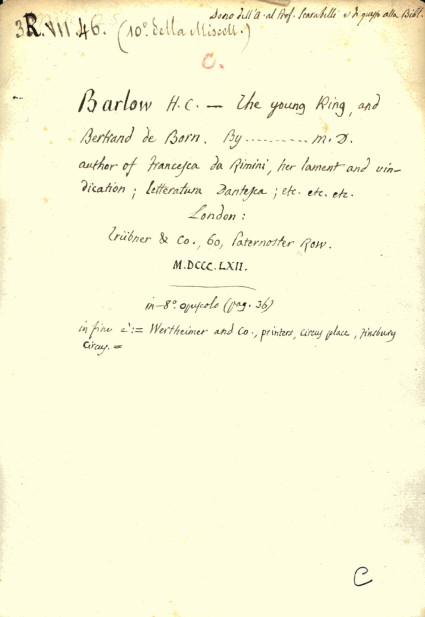 Dono dell'A. al Prof. Scarabelli e di questo alla Bibl.
3R.VII.46. (10°. della Miscell.)
C.
Barlow H.C. — The young King, and
Bertrand de Born. By ......... M.D.
author of Francesca da Rimini, her lament and vin-
dication; letteratura Dantesca; etc. etc. etc.
London:
Trübner & Co., 60, Paternoster Row.
M.DCCC.LXII.
in-8° opuscolo (pag. 36)
in fine è:= Wertheimer and Co., printers, Circus place, Finsburg
Circus.=
C